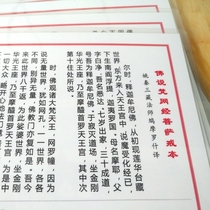 佛说梵网经菩萨戒本
姚秦三藏法师鸠摩罗什译
尔时,释迦牟尼佛,从初现莲华台藏
世界,东方来入天王宫中,说魔受化经已,
下生南阎浮提,迦夷罗国,母名摩耶,父
字白净,吾名悉达。七岁出家,三十成道,
号吾为释迦牟尼佛,于寂灭道场,坐金刚
华光王座,乃至摩醯首罗天王宫,其中次
第十住处所说。
时,佛观诸大梵天王,网罗幢,因为
说无量世界,犹如网孔,一一世界,各各
不同,别异无量,佛教门亦如是。吾今
为此娑婆世界,坐金刚
华光王座,乃至摩醯首罗天王宫,为是中
一切大众,略开心地法门